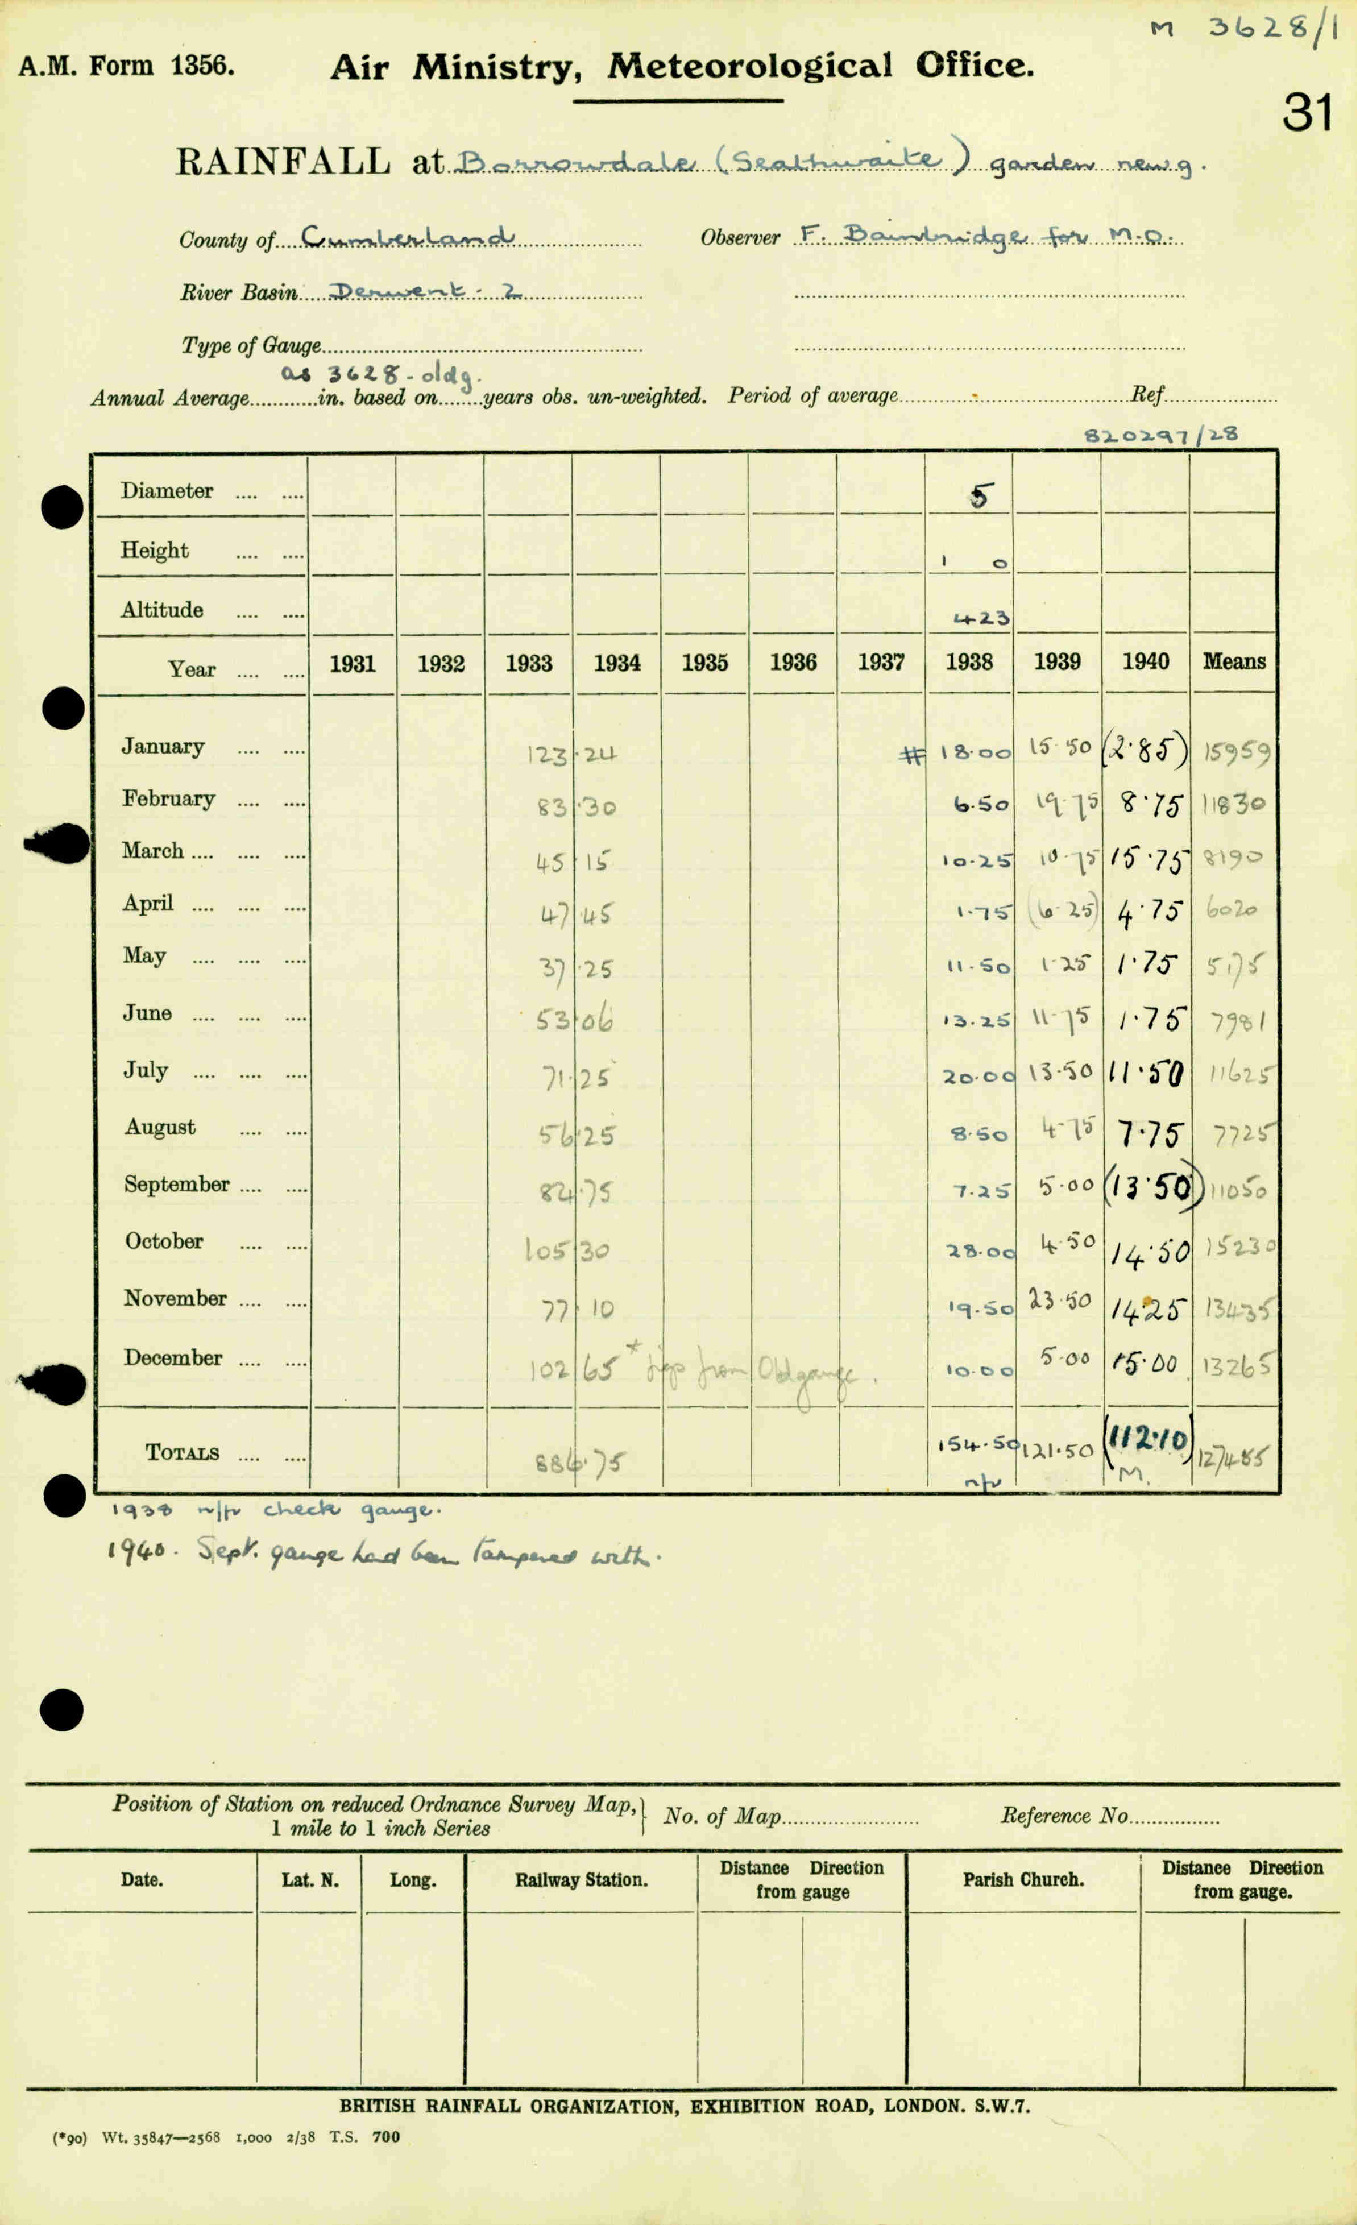 M 3628/1
A.M. Form 1356. Air Ministry, Meteorological Office.
31
RAINFALL at Borrowdale (Seathwaite) garden new g.
County of Cumberland Observer F. Bainbridge for M.O.
River Basin Derwent - 2
Type of Gauge
as 3628 - old g.
Annual Average in. based on years obs. un-weighted. Period of average Ref.
820297/28
Diameter 5
Height 1 0
Altitude 423
Year 1931 1932 1933 1934 1935 1936 1937 1938 1939 1940 Means
January 123.24 # 18.00 15.50 (2.85) 15959
February 83.30 6.50 19.75 8.75 11830
March 45.15 10.25 10.75 15.75 8190
April 47.45 1.75 (6.25) 4.75 6020
May 37.25 11.50 1.25 1.75 5175
June 53.06 13.25 11.75 1.75 7981
July 71.25 20.00 13.50 11.50 11625
August 56.25 8.50 4.75 7.75 7725
September 84.75 7.25 5.00 (13.50) 11050
October 105.30 28.00 4.50 14.50 15230
November 77.10 19.50 23.50 14.25 13435
December 102.65 * figs from Old gauge. 10.00 5.00 15.00 13265
TOTALS 886.75 154.50 121.50 (112.10) 127485
n/r M.
1938 n/r check gauge.
1940. Sept. gauge had been tampered with.
Position of Station on reduced Ordnance Survey Map, } No. of Map Reference No.
1 mile to 1 inch Series
Date. Lat. N. Long. Railway Station. Distance Direction from gauge Parish Church. Distance Direction from gauge.
BRITISH RAINFALL ORGANIZATION, EXHIBITION ROAD, LONDON. S.W.7.
(*90) Wt. 35847—2568 1,000 2/38 T.S. 700